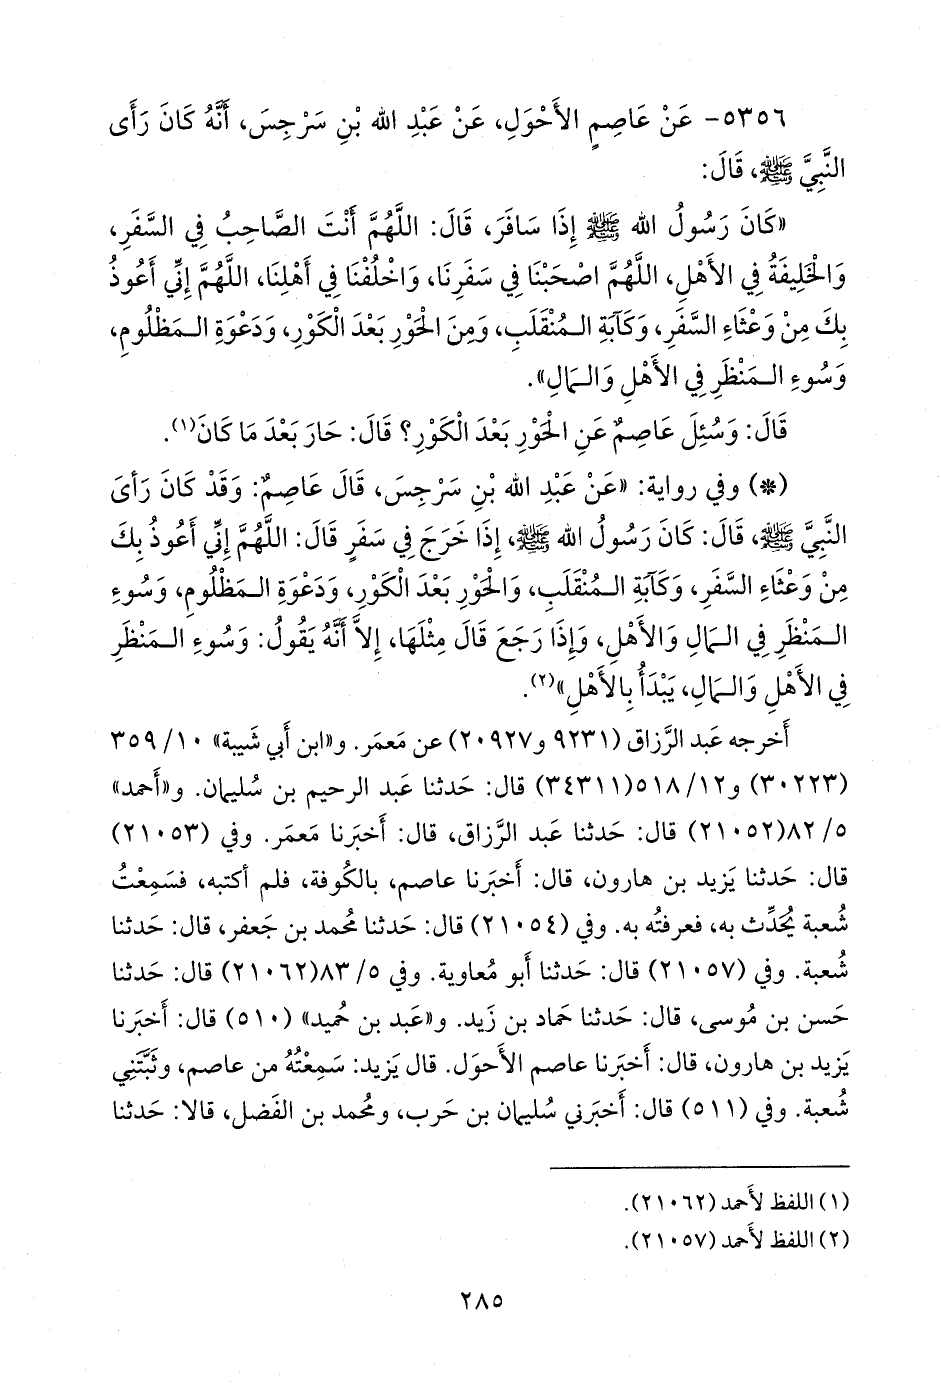 ٥٣٥٦- عَنْ عَاصِمٍ الأَحْوَلِ، عَنْ عَبْدِ الله بْنِ سَرْجِسَ، أَنَّهُ كَانَ رَأَى
النَّبِيَّ ﷺ، قَالَ:
«كَانَ رَسُولُ الله ﷺ إِذَا سَافَرَ، قَالَ: اللَّهُمَّ أَنْتَ الصَّاحِبُ فِي السَّفَرِ،
وَالْخَلِيفَةُ فِي الأَهْلِ، اللَّهُمَّ اصْحَبْنَا فِي سَفَرِنَا، وَاخْلُفْنَا فِي أَهْلِنَا، اللَّهُمَّ إِنِّي أَعُوذُ
بِكَ مِنْ وَعْثَاءِ السَّفَرِ، وَكَآبَةِ الـمُنْقَلَبِ، وَمِنَ الْحَوْرِ بَعْدَ الْكَوْرِ، وَدَعْوَةِ الـمَظْلُومِ،
وَسُوءِ الـمَنْظَرِ فِي الأَهْلِ وَالـمَالِ».
قَالَ: وَسُئِلَ عَاصِمٌ عَنِ الْحَوْرِ بَعْدَ الْكَوْرِ؟ قَالَ: حَارَ بَعْدَ مَا كَانَ(١).
(*) وفي رواية: «عَنْ عَبْدِ الله بْنِ سَرْجِسَ، قَالَ عَاصِمٌ: وَقَدْ كَانَ رَأَىَ
النَّبِيَّ ﷺ، قَالَ: كَانَ رَسُولُ الله ﷺ، إِذَا خَرَجَ فِي سَفَرٍ قَالَ: اللَّهُمَّ إِنِّي أَعُوذُ بِكَ
مِنْ وَعْثَاءِ السَّفَرِ، وَكَآبَةِ الـمُنْقَلَبِ، وَالْحَوْرِ بَعْدَ الْكَوْرِ، وَدَعْوَةِ الـمَظْلُومِ، وَسُوءِ
الـمَنْظَرِ فِي الـمَالِ وَالأَهْلِ، وَإِذَا رَجَعَ قَالَ مِثْلَهَا، إِلاَّ أَنَّهُ يَقُولُ: وَسُوءِ الـمَنْظَرِ
فِي الأَهْلِ وَالـمَالِ، يَبْدَأُ بِالأَهْلِ»(٢).
أَخرجه عَبد الرَّزاق (٩٢٣١ و٢٠٩٢٧) عن مَعمَر. و«ابن أَبي شَيبة» ١٠/ ٣٥٩
(٣٠٢٢٣) و١٢/ ٥١٨(٣٤٣١١) قال: حَدثنا عَبد الرحيم بن سُليمان. و«أَحمد»
٥/ ٨٢(٢١٠٥٢) قال: حَدثنا عَبد الرَّزاق، قال: أَخبَرنا مَعمَر. وفي (٢١٠٥٣)
قال: حَدثنا يَزيد بن هارون، قال: أَخبَرنا عاصم، بالكُوفة، فلم أَكتبه، فسَمِعْتُ
شُعبة يُحَدِّث به، فعرفتُه به. وفي (٢١٠٥٤) قال: حَدثنا مُحمد بن جَعفر، قال: حَدثنا
شُعبة. وفي (٢١٠٥٧) قال: حَدثنا أَبو مُعاوية. وفي ٥/ ٨٣(٢١٠٦٢) قال: حَدثنا
حَسن بن مُوسى، قال: حَدثنا حَماد بن زَيد. و«عَبد بن حُميد» (٥١٠) قال: أَخبَرنا
يَزيد بن هارون، قال: أَخبَرنا عاصم الأَحوَل. قال يَزيد: سَمِعْتُهُ من عاصم، وثَبَّتَنِي
شُعبة. وفي (٥١١) قال: أَخبَرني سُليمان بن حَرب، ومُحمد بن الفَضل، قالا: حَدثنا
(١) اللفظ لأَحمد (٢١٠٦٢).
(٢) اللفظ لأَحمد (٢١٠٥٧).
٢٨٥